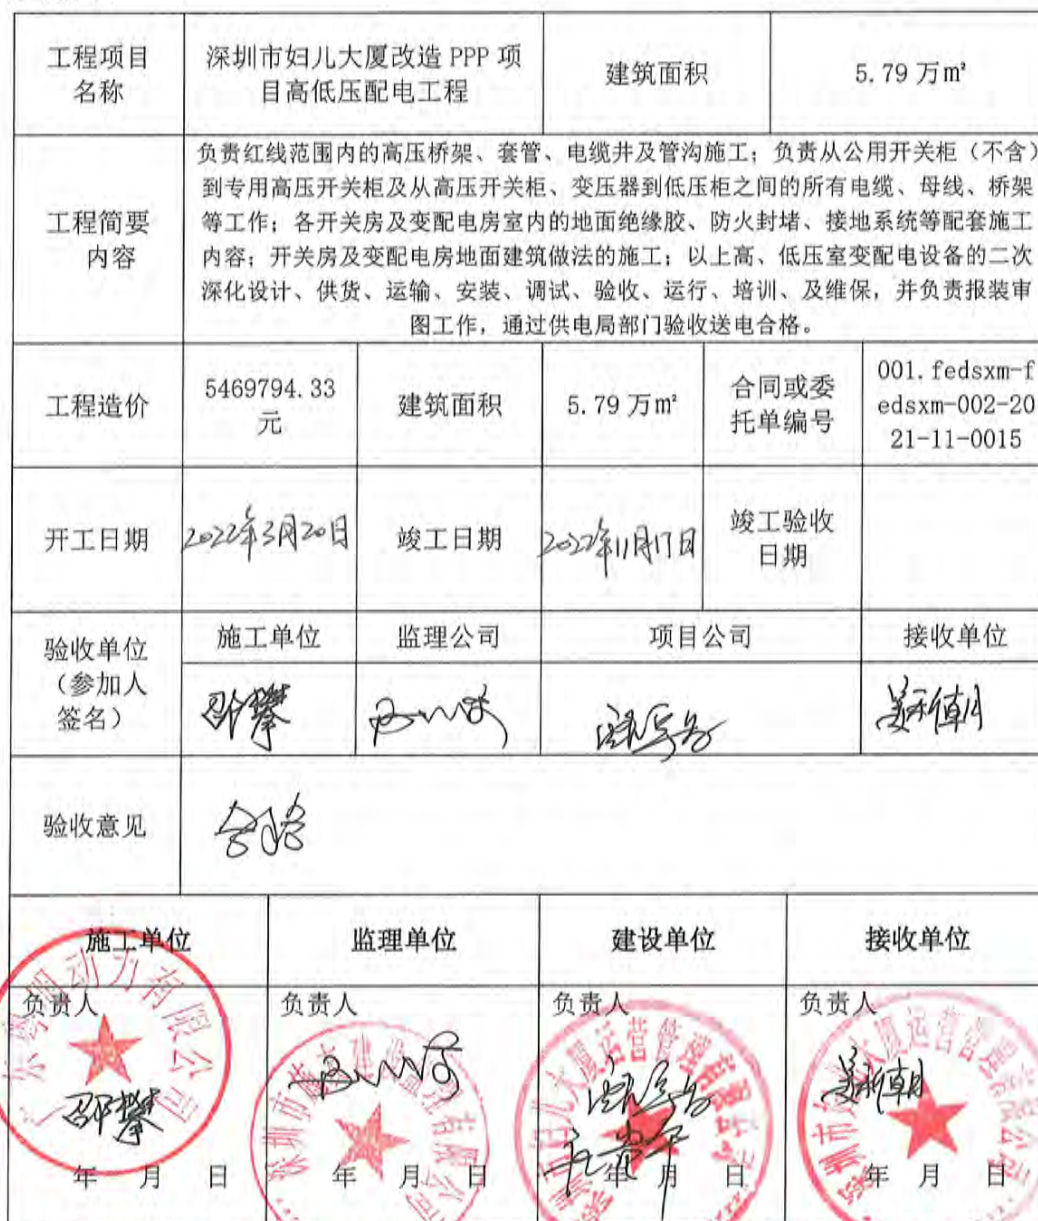 工程项目
名称
深圳市妇儿大厦改造 PPP 项
目高低压配电工程
建筑面积
5.79 万㎡
工程简要
内容
负责红线范围内的高压桥架、套管、电缆井及管沟施工；负责从公用开关柜（不含）
到专用高压开关柜及从高压开关柜、变压器到低压柜之间的所有电缆、母线、桥架
等工作；各开关房及变配电房室内的地面绝缘胶、防火封堵、接地系统等配套施工
内容；开关房及变配电房地面建筑做法的施工；以上高、低压室变配电设备的二次
深化设计、供货、运输、安装、调试、验收、运行、培训、及维保，并负责报装审
图工作，通过供电局部门验收送电合格。
工程造价
5469794.33
元
建筑面积
5.79 万㎡
合同或委
托单编号
001.fedsxm-f
edsxm-002-20
21-11-0015
开工日期
2022年3月20日
竣工日期
2022年11月17日
竣工验收
日期
验收单位
（参加人
签名）
施工单位
监理公司
项目公司
接收单位
邵攀
验收意见
合格
施工单位
监理单位
建设单位
接收单位
负责人
负责人
负责人
负责人
动力有限公司
深圳市
建设监理有限公司
儿大厦运营管理有限公司
深圳市
大厦运营管理有限公司
邵攀
年 月 日
年 月 日
年 月 日
年 月 日